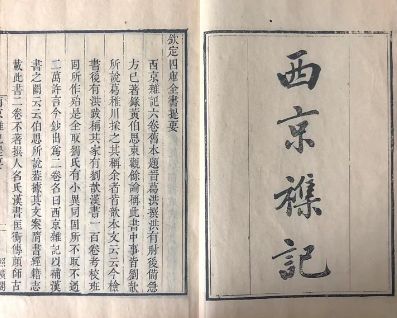 西京襍記
欽定四庫全書提要
西京雜記六卷舊本題晉葛洪撰洪有肘後備急
方已著錄黃伯思東觀餘論稱此書中事皆劉歆
所說葛稚川採之其稱余者皆歆本文云云今檢
書後有洪跋稱其家有劉歆漢書一百卷考校班
固所作殆是全取劉氏有小異同固所不取不過
二萬許言今鈔出為二卷名曰西京雜記以補漢
書之闕云云伯思所說蓋據其文案隋書經籍志
載此書二卷不著撰人名氏漢書匡衡傳顏師古